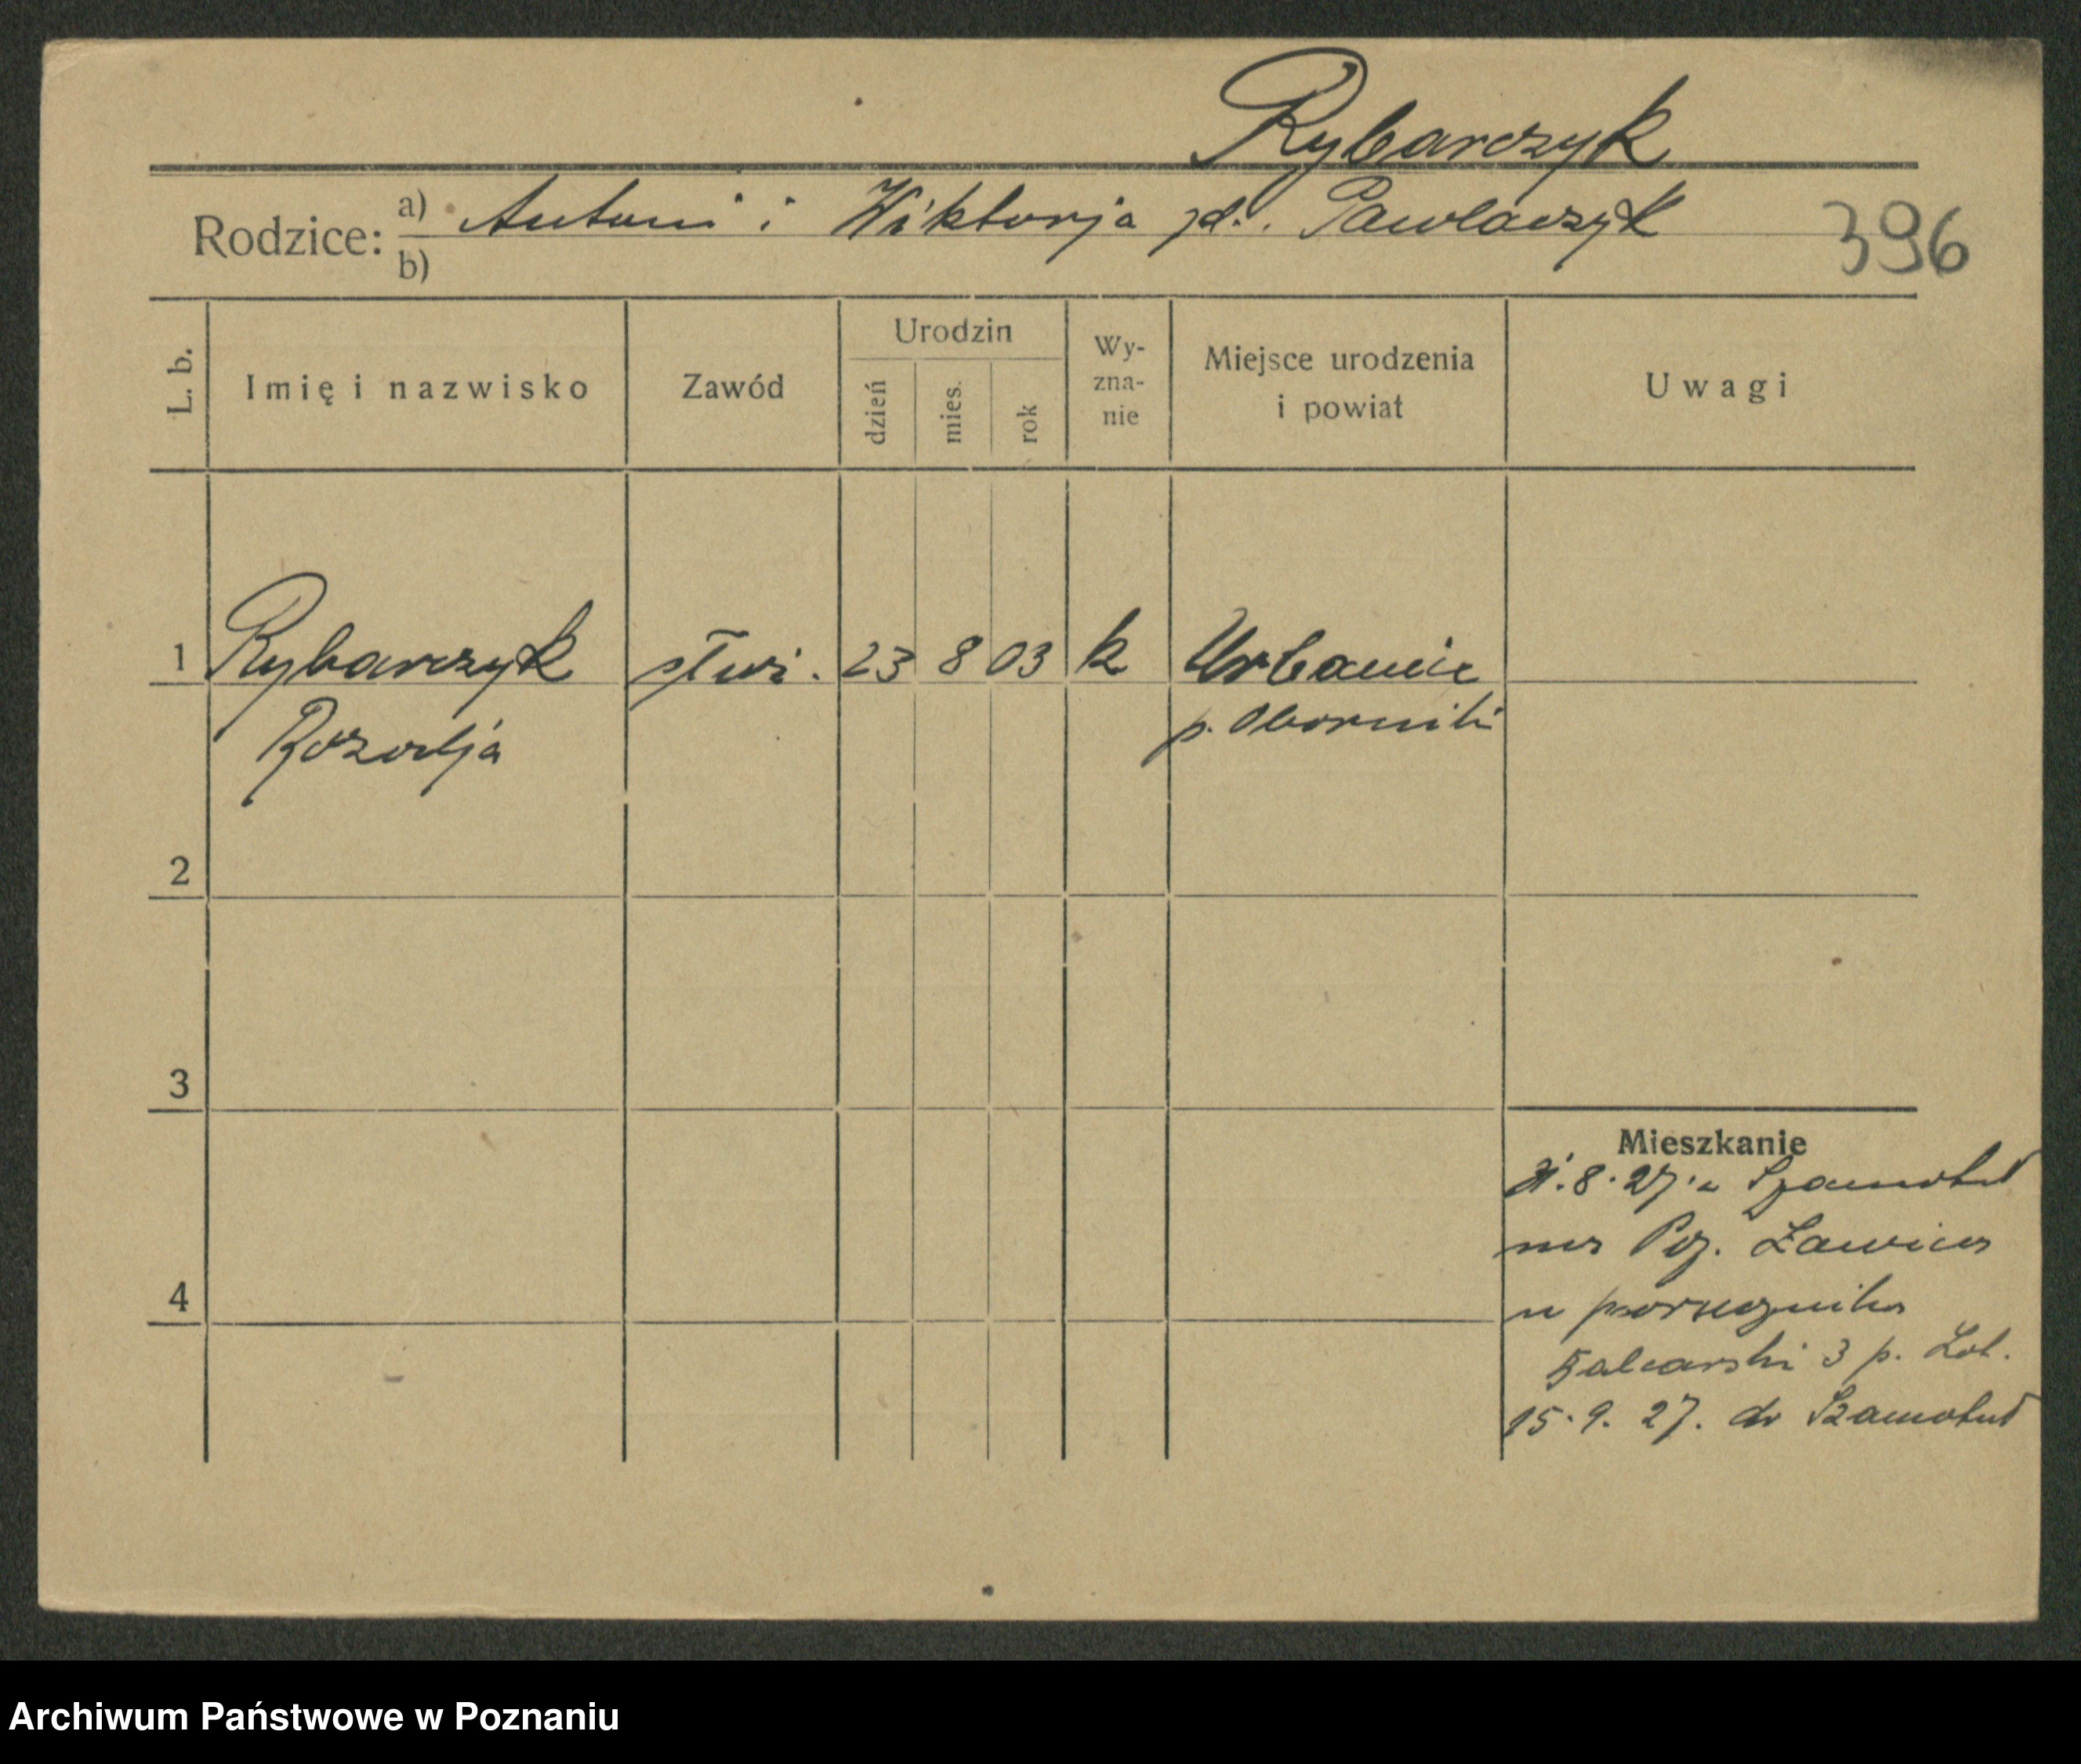 Rybarczyk
Rodzice: a) Antoni i Wiktorja zd. Pawlaczyk
b)
396
L. b.
Imię i nazwisko
Zawód
Urodzin
dzień
mies.
rok
Wy-
zna-
nie
Miejsce urodzenia
i powiat
Uwagi
1 Rybarczyk służ. 23 8 03 k Urbanie
Rozalja p. Oborniki
2
3
Mieszkanie
31.8.27. z Szamotuł
na Poz. Ławica
4
u porucznika
3 p. Lot.
15.9.27. do Szamotuł
Archiwum Państwowe w Poznaniu